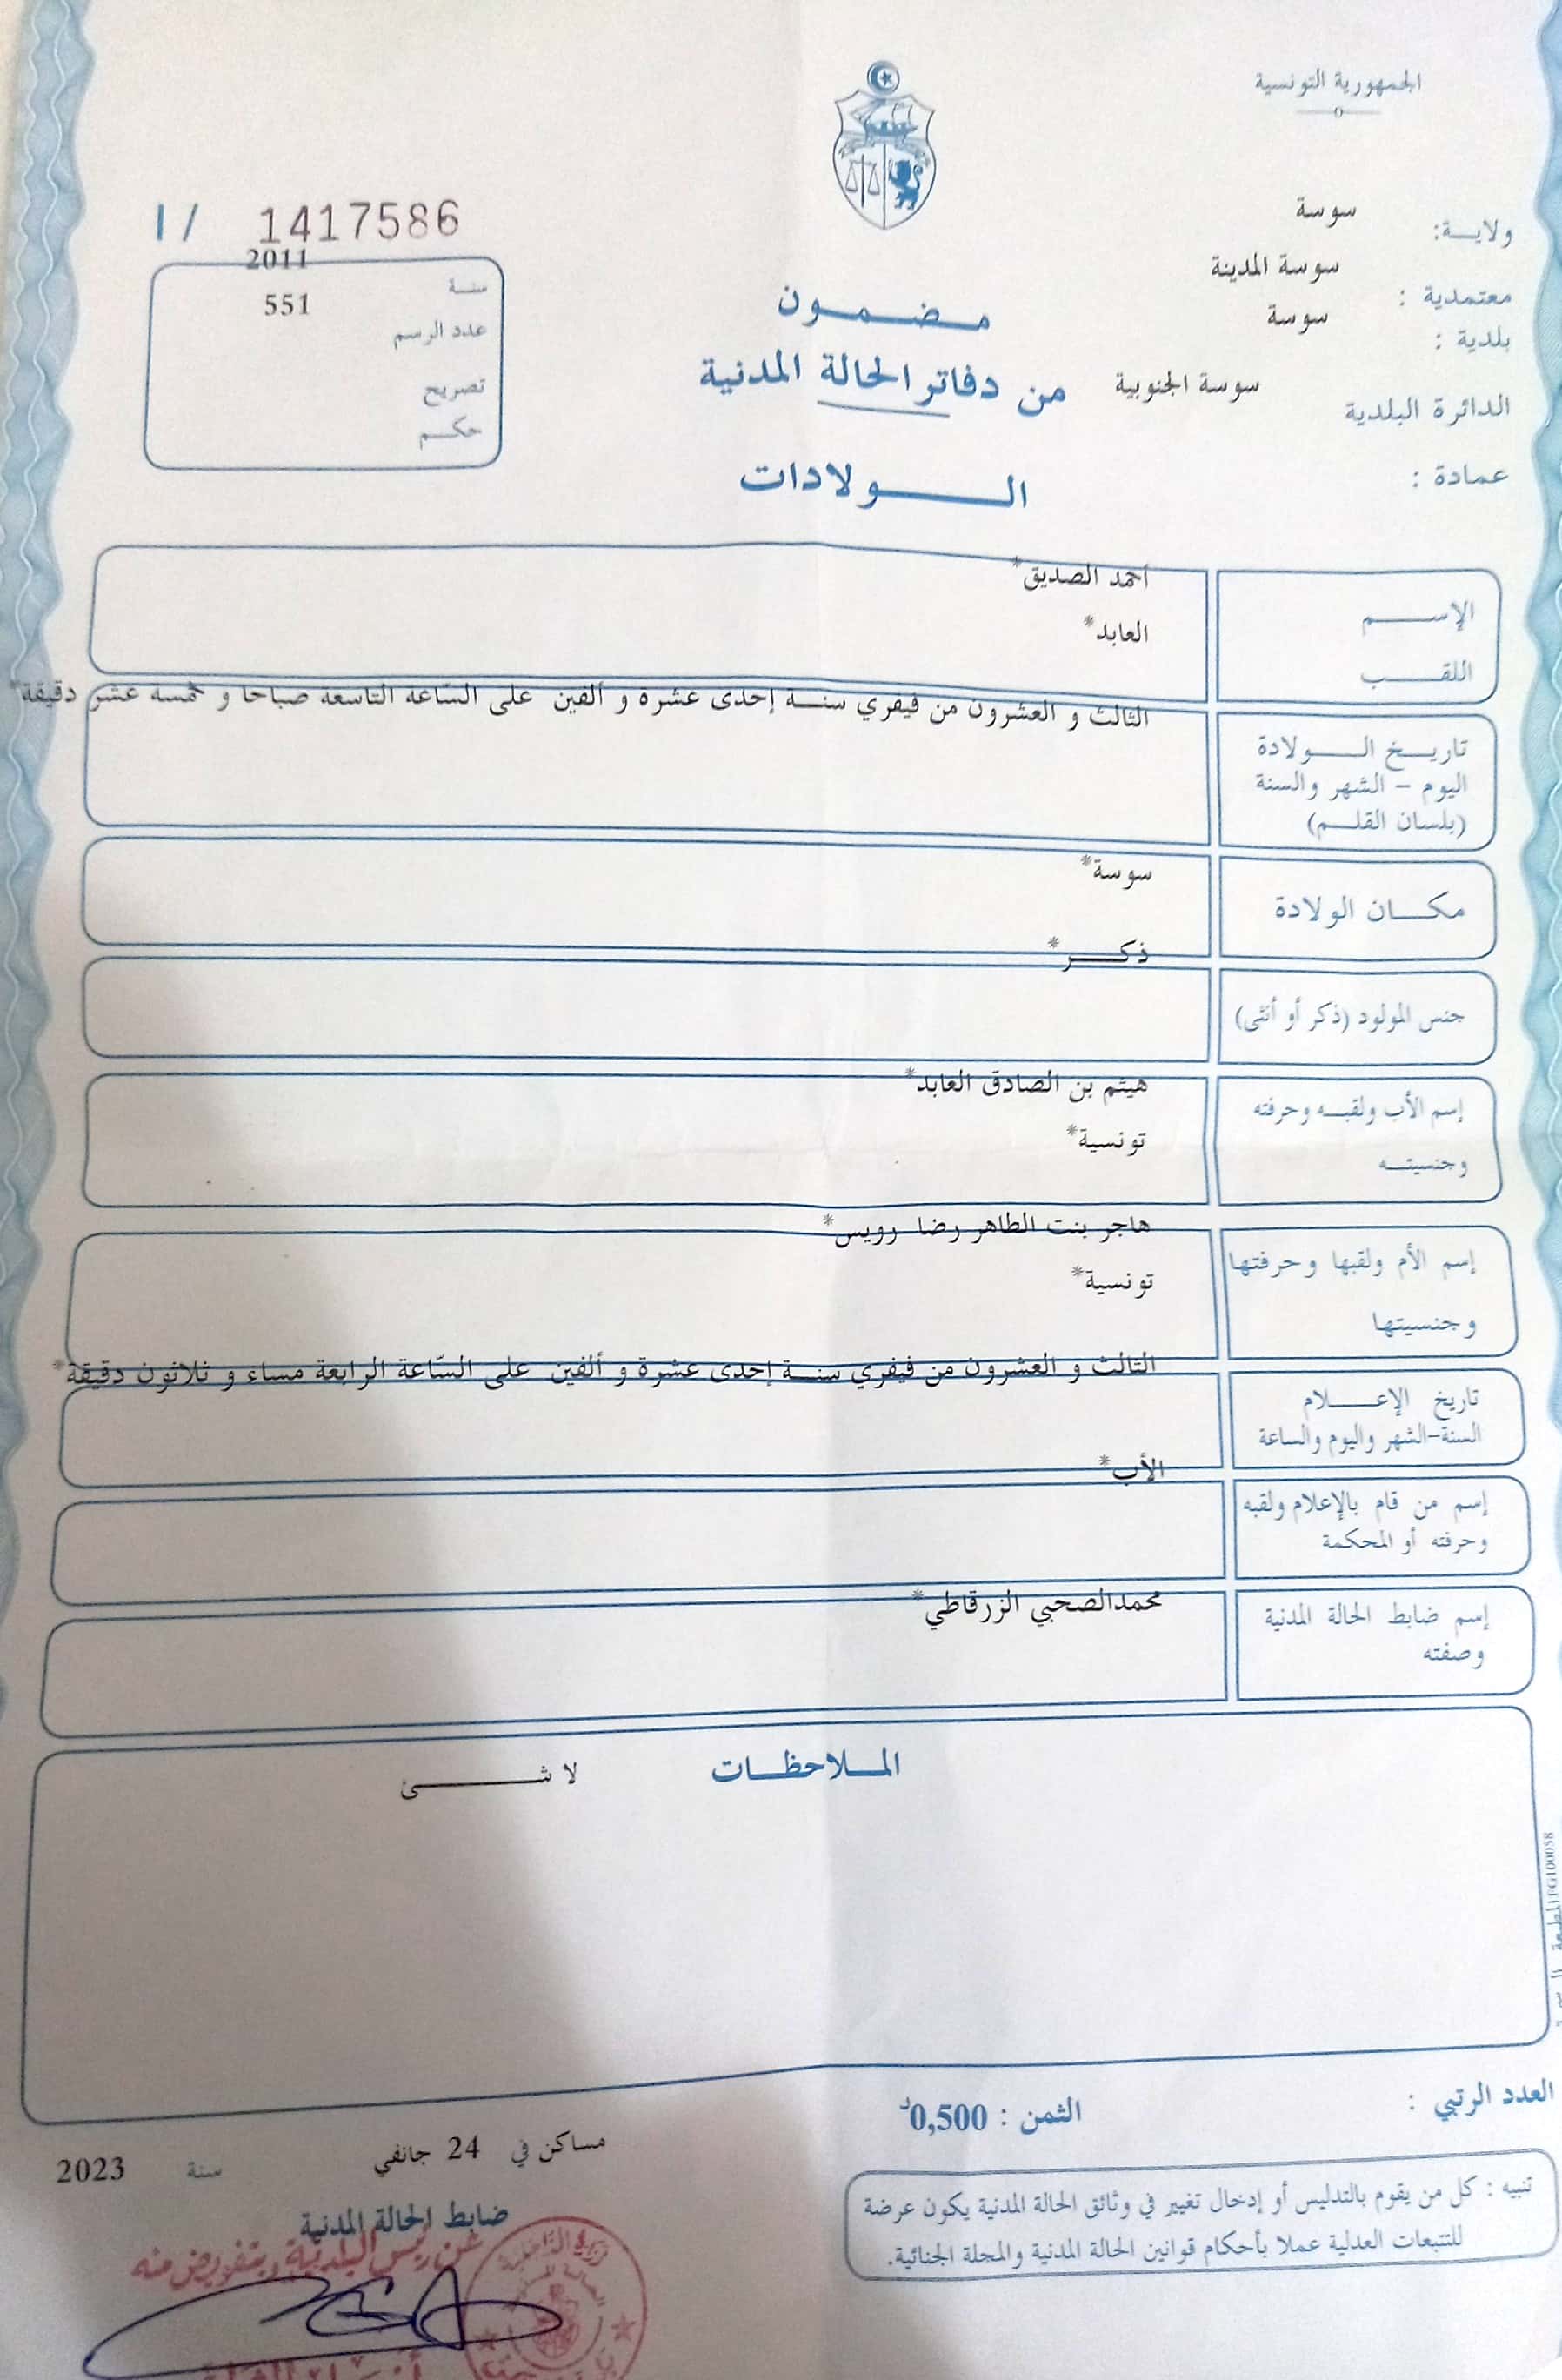 الجمهورية التونسية
ولاية: سوسة
معتمدية : سوسة المدينة
بلدية : سوسة
الدائرة البلدية سوسة الجنوبية
عمادة :
مضمون
من دفاتر الحالة المدنية
الولادات
1417586 / I
سنة 2011
عدد الرسم 551
تصريح
حكم
الإسم أحمد الصديق*
اللقب العابد*
تاريخ الولادة الثالث و العشرون من فيفري سنة إحدى عشرة و ألفين على السّاعة التاسعة صباحا و خمسة عشر دقيقة*
اليوم - الشهر والسنة
(بلسان القلم)
مكان الولادة سوسة*
جنس المولود (ذكر أو أنثى) ذكر*
إسم الأب ولقبه وحرفته هيثم بن الصادق العابد*
وجنسيته تونسية*
إسم الأم ولقبها وحرفتها هاجر بنت الطاهر رضا رويس*
وجنسيتها تونسية*
تاريخ الإعلام الثالث و العشرون من فيفري سنة إحدى عشرة و ألفين على السّاعة الرابعة مساء و ثلاثون دقيقة*
السنة-الشهر واليوم والساعة
إسم من قام بالإعلام ولقبه الأب*
وحرفته أو المحكمة
إسم ضابط الحالة المدنية محمدالصحبي الزرقاطي*
وصفته
الملاحظات لا شئ
العدد الرتبي :
الثمن : 0,500د
تنبيه : كل من يقوم بالتدليس أو إدخال تغيير في وثائق الحالة المدنية يكون عرضة
للتتبعات العدلية عملا بأحكام قوانين الحالة المدنية والمجلة الجنائية.
مساكن في 24 جانفي سنة 2023
ضابط الحالة المدنية
عن رئيس البلدية وبتفويض منه
وزارة الداخلية